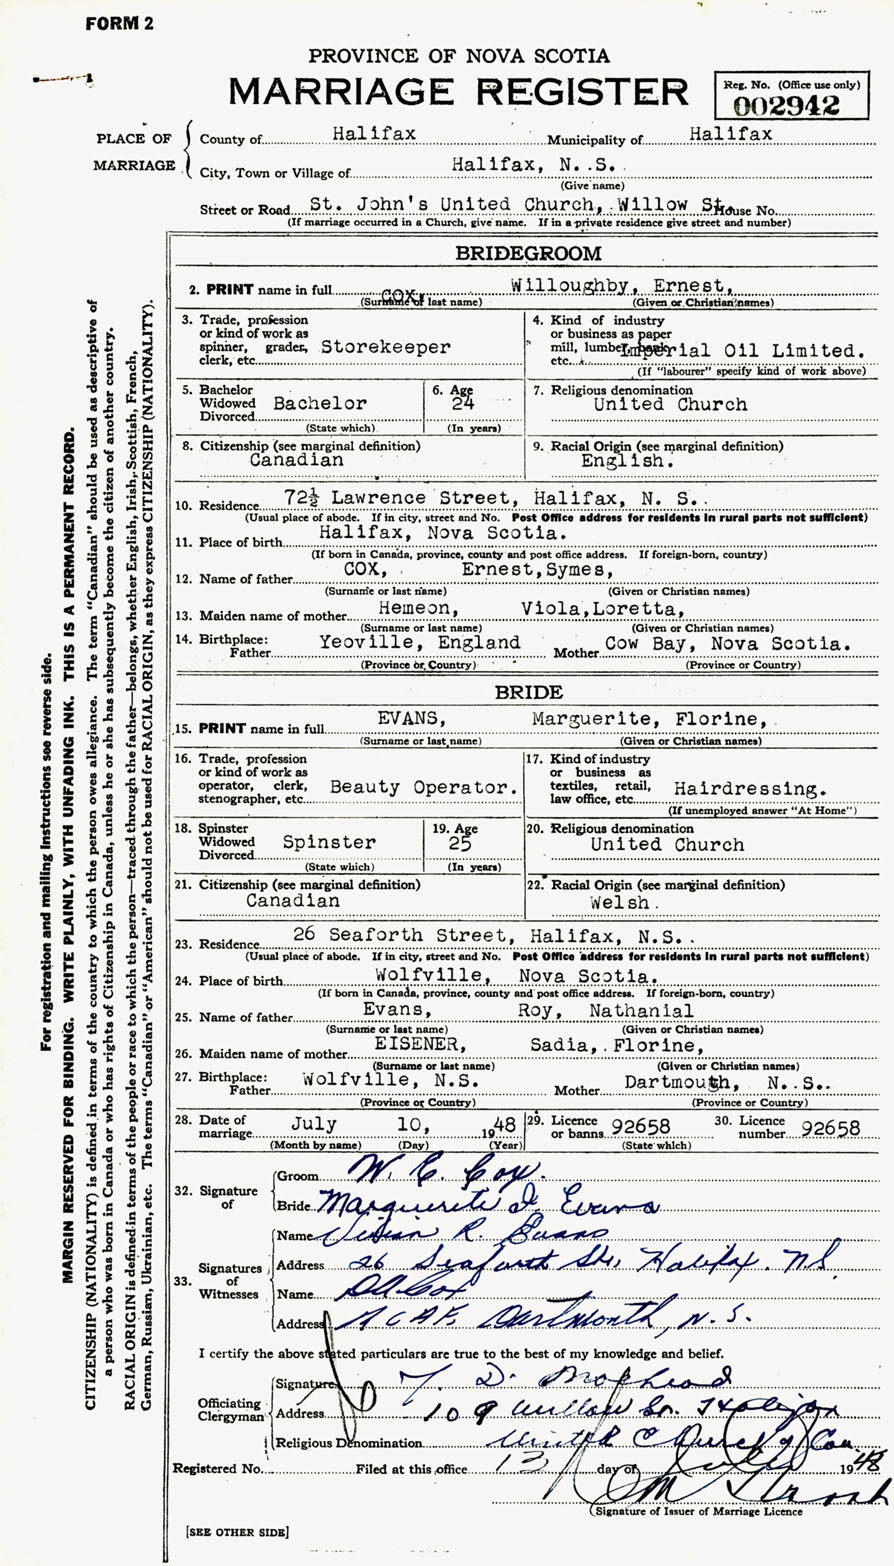 FORM 2
PROVINCE OF NOVA SCOTIA
MARRIAGE REGISTER
Reg. No. (Office use only)
002942
PLACE OF MARRIAGE
County of Halifax Municipality of Halifax
City, Town or Village of Halifax, N. S.
(Give name)
Street or Road St. John's United Church, Willow St. House No.
(If marriage occurred in a Church, give name. If in a private residence give street and number)
BRIDEGROOM
2. PRINT name in full COX, Willoughby, Ernest,
(Surname or last name) (Given or Christian names)
3. Trade, profession or kind of work as spinner, grader, clerk, etc. Storekeeper
4. Kind of industry or business as paper mill, lumber, bank, etc. Imperial Oil Limited.
(If "labourer" specify kind of work above)
5. Bachelor Widowed Divorced Bachelor
(State which)
6. Age 24
(In years)
7. Religious denomination
United Church
8. Citizenship (see marginal definition)
Canadian
9. Racial Origin (see marginal definition)
English.
10. Residence 72½ Lawrence Street, Halifax, N. S.
(Usual place of abode. If in city, street and No. Post Office address for residents in rural parts not sufficient)
11. Place of birth Halifax, Nova Scotia.
(If born in Canada, province, county and post office address. If foreign-born, country)
12. Name of father COX, Ernest,Symes,
(Surname or last name) (Given or Christian names)
13. Maiden name of mother Hemeon, Viola,Loretta,
(Surname or last name) (Given or Christian names)
14. Birthplace: Father Yeoville, England Mother Cow Bay, Nova Scotia.
(Province or Country) (Province or Country)
BRIDE
15. PRINT name in full EVANS, Marguerite, Florine,
(Surname or last name) (Given or Christian names)
16. Trade, profession or kind of work as operator, clerk, stenographer, etc. Beauty Operator.
17. Kind of industry or business as textiles, retail, law office, etc. Hairdressing.
(If unemployed answer "At Home")
18. Spinster Widowed Divorced Spinster
(State which)
19. Age 25
(In years)
20. Religious denomination
United Church
21. Citizenship (see marginal definition)
Canadian
22. Racial Origin (see marginal definition)
Welsh.
23. Residence 26 Seaforth Street, Halifax, N.S.
(Usual place of abode. If in city, street and No. Post Office address for residents in rural parts not sufficient)
24. Place of birth Wolfville, Nova Scotia.
(If born in Canada, province, county and post office address. If foreign-born, country)
25. Name of father Evans, Roy, Nathanial
(Surname or last name) (Given or Christian names)
26. Maiden name of mother EISENER, Sadia, Florine,
(Surname or last name) (Given or Christian names)
27. Birthplace: Father Wolfville, N.S. Mother Dartmouth, N. S.
(Province or Country) (Province or Country)
28. Date of marriage July 10, 1948
(Month by name) (Day) (Year)
29. Licence or banns 92658
(State which)
30. Licence number 92658
32. Signature of
Groom W. E. Cox.
Bride Marguerite F. Evans
33. Signatures of Witnesses
Name Vivian R. Evans
Address 26 Seaforth St., Halifax. N.S.
Name Cox
Address R C A F. Dartmouth, N. S.
I certify the above stated particulars are true to the best of my knowledge and belief.
Officiating Clergyman
Signature D.
Address 109 Willow St. Halifax
Religious Denomination United Church of Can.
Registered No. Filed at this office 13 day of July 1948
(Signature of Issuer of Marriage Licence
[SEE OTHER SIDE]
For registration and mailing instructions see reverse side.
MARGIN RESERVED FOR BINDING. WRITE PLAINLY, WITH UNFADING INK. THIS IS A PERMANENT RECORD.
CITIZENSHIP (NATIONALITY) is defined in terms of the country to which the person owes allegiance. The term "Canadian" should be used as descriptive of
a person who was born in Canada or who has rights of Citizenship in Canada, unless he or she has subsequently become the citizen of another country.
RACIAL ORIGIN is defined in terms of the people or race to which the person—traced through the father—belongs, whether English, Irish, Scottish, French,
German, Russian, Ukrainian, etc. The terms "Canadian" or "American" should not be used for RACIAL ORIGIN, as they express CITIZENSHIP (NATIONALITY).